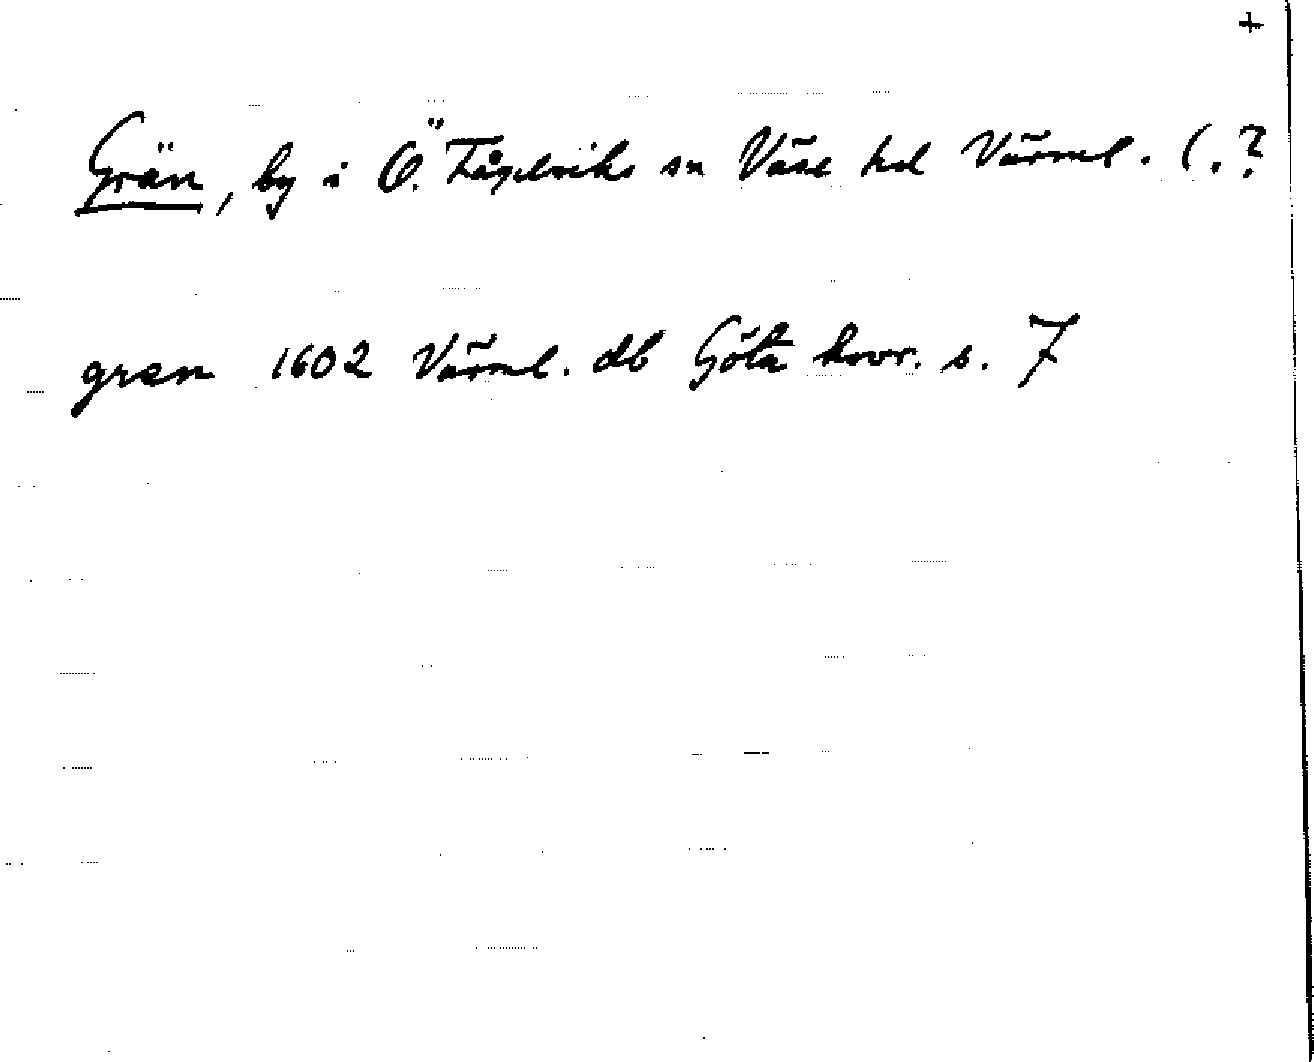 +
Grän, by i Ö. Fågelviks sn Väse hd Värml. (.?
gren 1602 Värml. db Göta hovr. s. 7